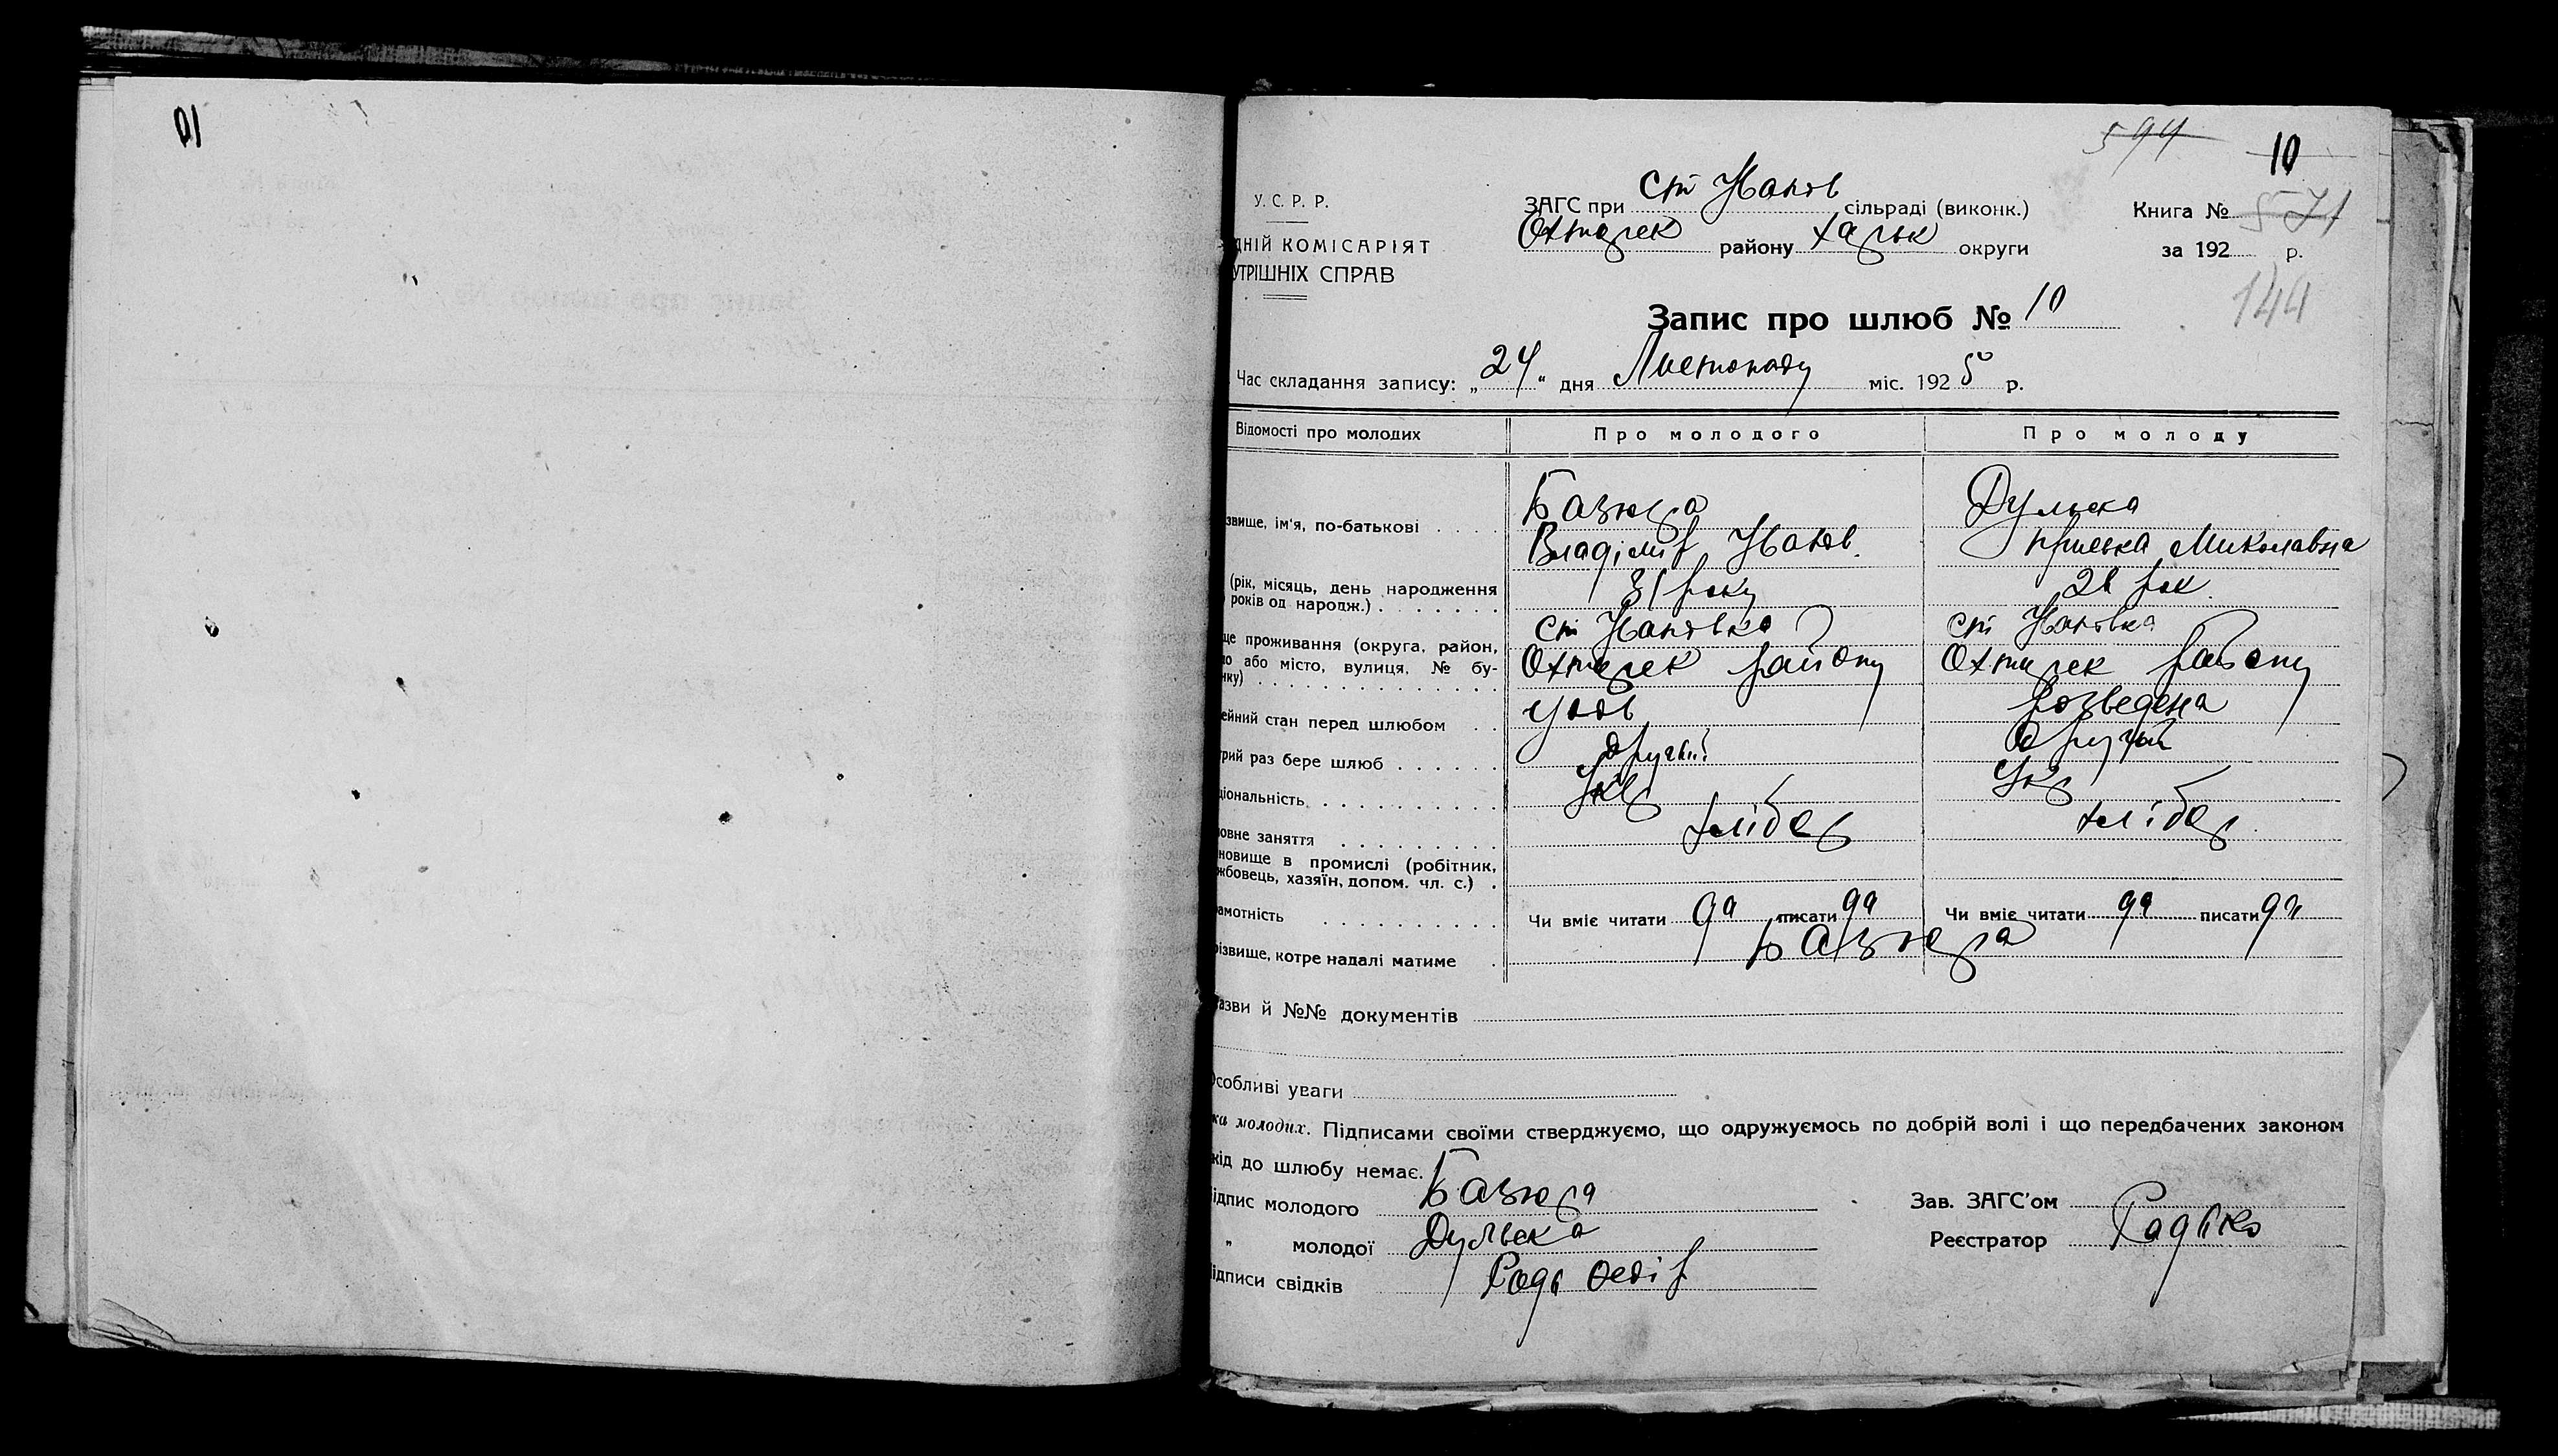 10
594
10
У. С. Р. Р.
ЗАГС при Ст Иванов сільраді (виконк.)
Книга № 571
ДНІЙ КОМІСАРІЯТ
Охтирск району Харьк округи
за 192 р.
УТРІШНІХ СПРАВ
144
Запис про шлюб № 10
Час складання запису: „24“ дня Листопаду міс. 1925 р.
Відомості про молодих
Про молодого
Про молоду
звище, ім'я, по-батькові
Базюра
Дульска
Владімір Иванов.
Приська Миколавна
(рік, місяць, день народження
років од народж.)
31 року
28 рок.
ще проживання (округа, район,
ст Ивановка
ст Ивановка
або місто, вулиця, № бу-
Охтирск району
Охтирск району
нку)
ейний стан перед шлюбом
удов
розведена
рий раз бере шлюб
другий
другий
ціональність
Укр
Укр
овне заняття
хлібор
хлібор.
новище в промислі (робітник,
жбовець, хазяїн, допом. чл. с.)
амотність
Чи вміє читати да писати да
Чи вміє читати да писати да
різвище, котре надалі матиме
Базюра
азви й №№ документів
Особливі уваги
ка молодих. Підписами своїми стверджуємо, що одружуємось по добрій волі і що передбачених законом
кід до шлюбу немає.
ідпис молодого Базюра
Зав. ЗАГС'ом
„ молодої Дульска
Реєстратор
ідписи свідків